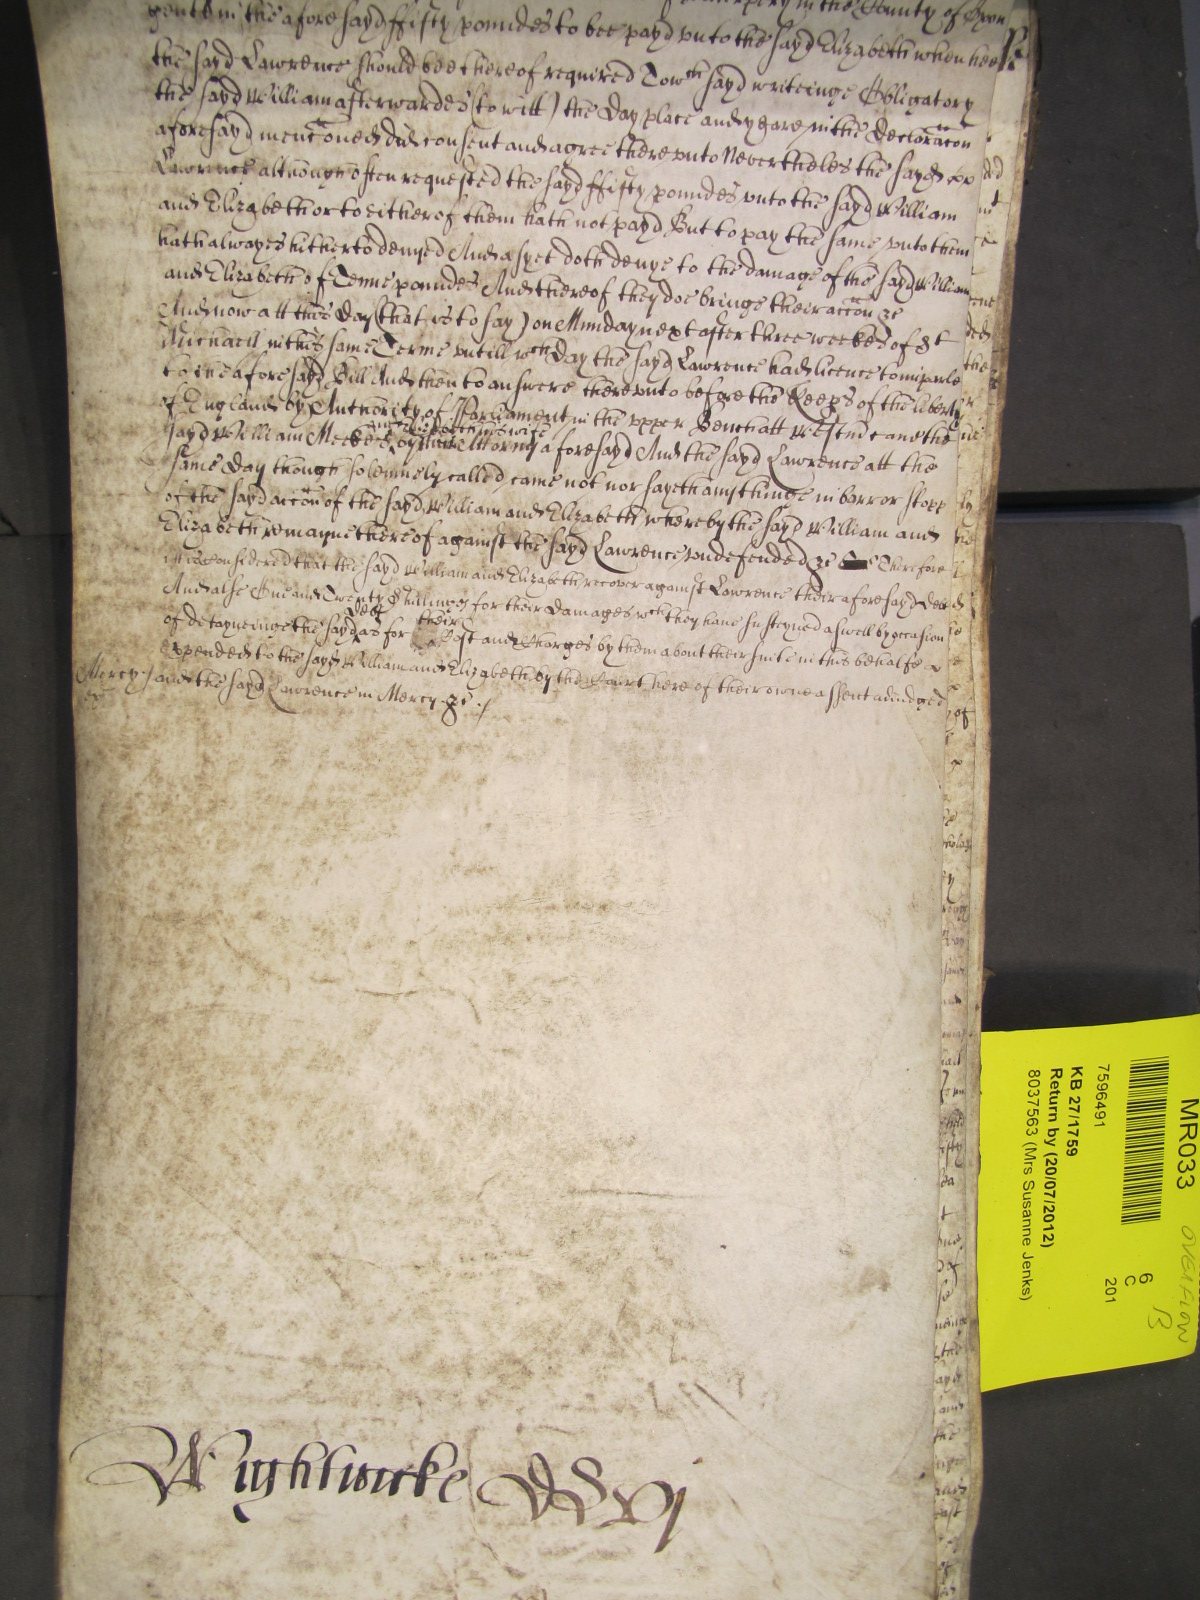 in the County of
gent in the aforesayd ffifty poundes to bee payd vnto the sayd Elizabeth when hee
the sayd Lawrence should bee thereof required To wch sayd writeinge Obligatory
the sayd William afterwardes (to witt) the day place and yeare in the declaracon
aforesayd menconed did consent and agree therevnto Neverthelesse the sayd
Lawrence although often requested the sayd ffifty poundes vnto the sayd William
and Elizabeth or to either of them hath not payd But to pay the same vnto them
hath alwayes hitherto denyed And as yet doth denye to the damage of the sayd William
and Elizabeth of Tenne poundes And thereof they doe bringe their accon &c
And now att this day (that is to say) on Munday next after three weekes of St
Michaell in this same Terme vntill wch day the sayd Lawrence had licence to imparle
to the aforesayd Bill And then to answere therevnto before the Keeps of the liberty
of England by Authority of Parliament in the vpper Bench att Westm came the
sayd William Meekes and Elizabeth his wife by their Attorny aforesayd And the sayd Lawrence att the
same day though solemnely called came not nor sayeth anythinge in barr or stopp
of the sayd accon of the sayd William and Elizabeth whereby the sayd William and
Elizabeth remayne thereof against the sayd Lawrence vndefended &c Therefore
itt is considered that the sayd William and Elizabeth recover against Lawrence their aforesayd debt
And alsoe One and Twenty shillinges for their damages wch they haue susteyned aswell by occasion
of deteyneinge the sayd debt as for their Cost and Charges by them about their suite in this behalfe
expended to the sayd William and Elizabeth by the Court here of their owne assent adiudged
Mercy and the sayd Lawrence in Mercy &c
Wightwicke
MR033
7596491
KB 27/1759
Return by (20/07/2012)
8037563 (Mrs Susanne Jenks)
6
C
201
OVERFLOW
B